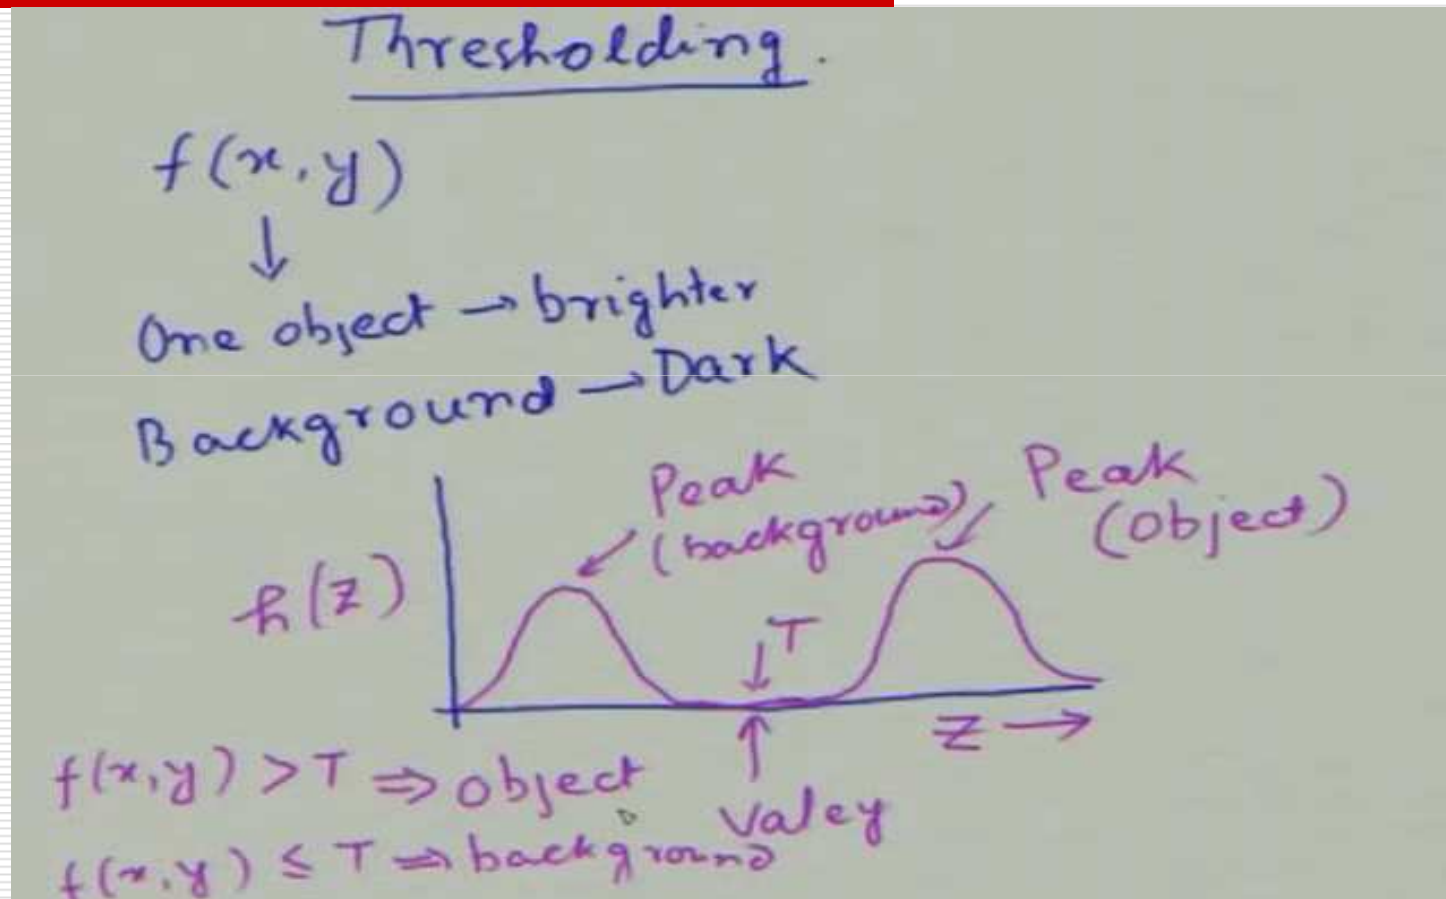 Thresholding.
f(x,y)
↓
One object → brighter
Background → Dark
Peak
(background)
Peak
(object)
h(z)
T
z →
valey
f(x,y) > T ⇒ object
f(x,y) ≤ T ⇒ background